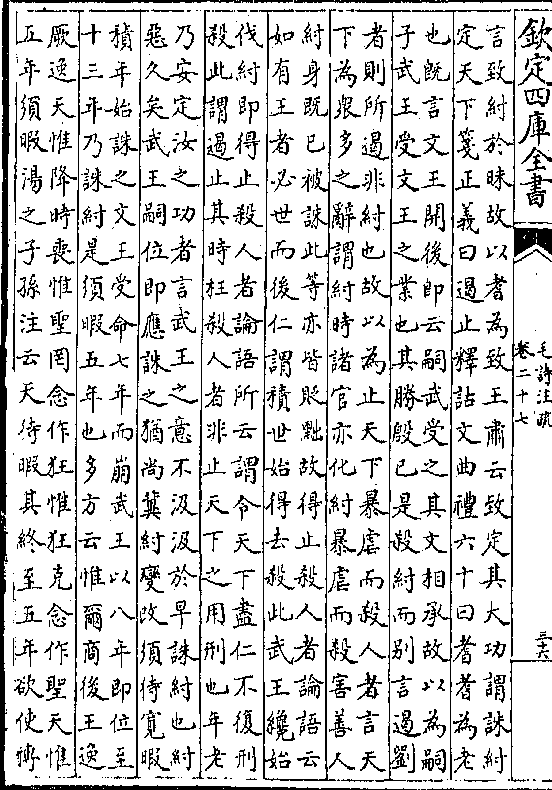 欽定四庫全書
毛詩注疏
卷二十七
三十六
言致紂於昧故以耆為致王肅云致定其大功謂誅紂
定天下箋正義曰遏止釋詁文曲禮六十曰耆耆為老
也旣言文王開後即云嗣武受之其文相承故以為嗣
子武王受文王之業也其勝殷已是殺紂而别言遏劉
者則所遏非紂也故以為止天下暴虐而殺人者言天
下為衆多之辭謂紂時諸官亦化紂暴虐而殺害善人
紂身既已被誅此等亦皆貶黜故得止殺人者論語云
如有王者必世而後仁謂積世始得去殺此武王纔始
伐紂即得止殺人者論語所云謂令天下盡仁不復刑
殺此謂遏止其時枉殺人者非止天下之用刑也年老
乃安定汝之功者言武王之意不汲汲於早誅紂也紂
惡久矣武王嗣位即應誅之猶尚冀紂變改須待寛暇
積年始誅之文王受命七年而崩武王以八年即位至
十三年乃誅紂是須暇五年也多方云惟爾商後王逸
厥逸天惟降時喪惟聖罔念作狂惟狂克念作聖天惟
五年須暇湯之子孫注云天待暇其終至五年欲使傳